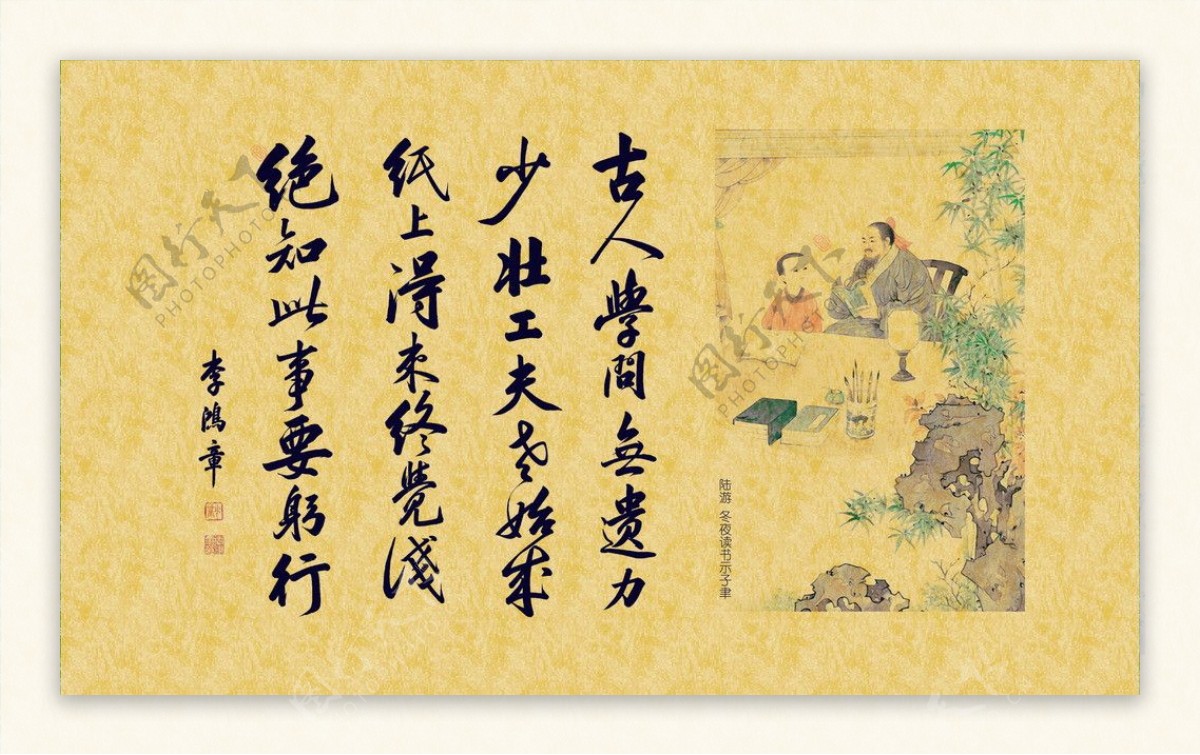 陆游 冬夜读书示子聿
古人學問無遗力
少壮工夫老始成
纸上得来终覺淺
绝知此事要躬行
李鴻章
图行天下
PHOTOPHOTO
图行天下
PHOTOPHOTO